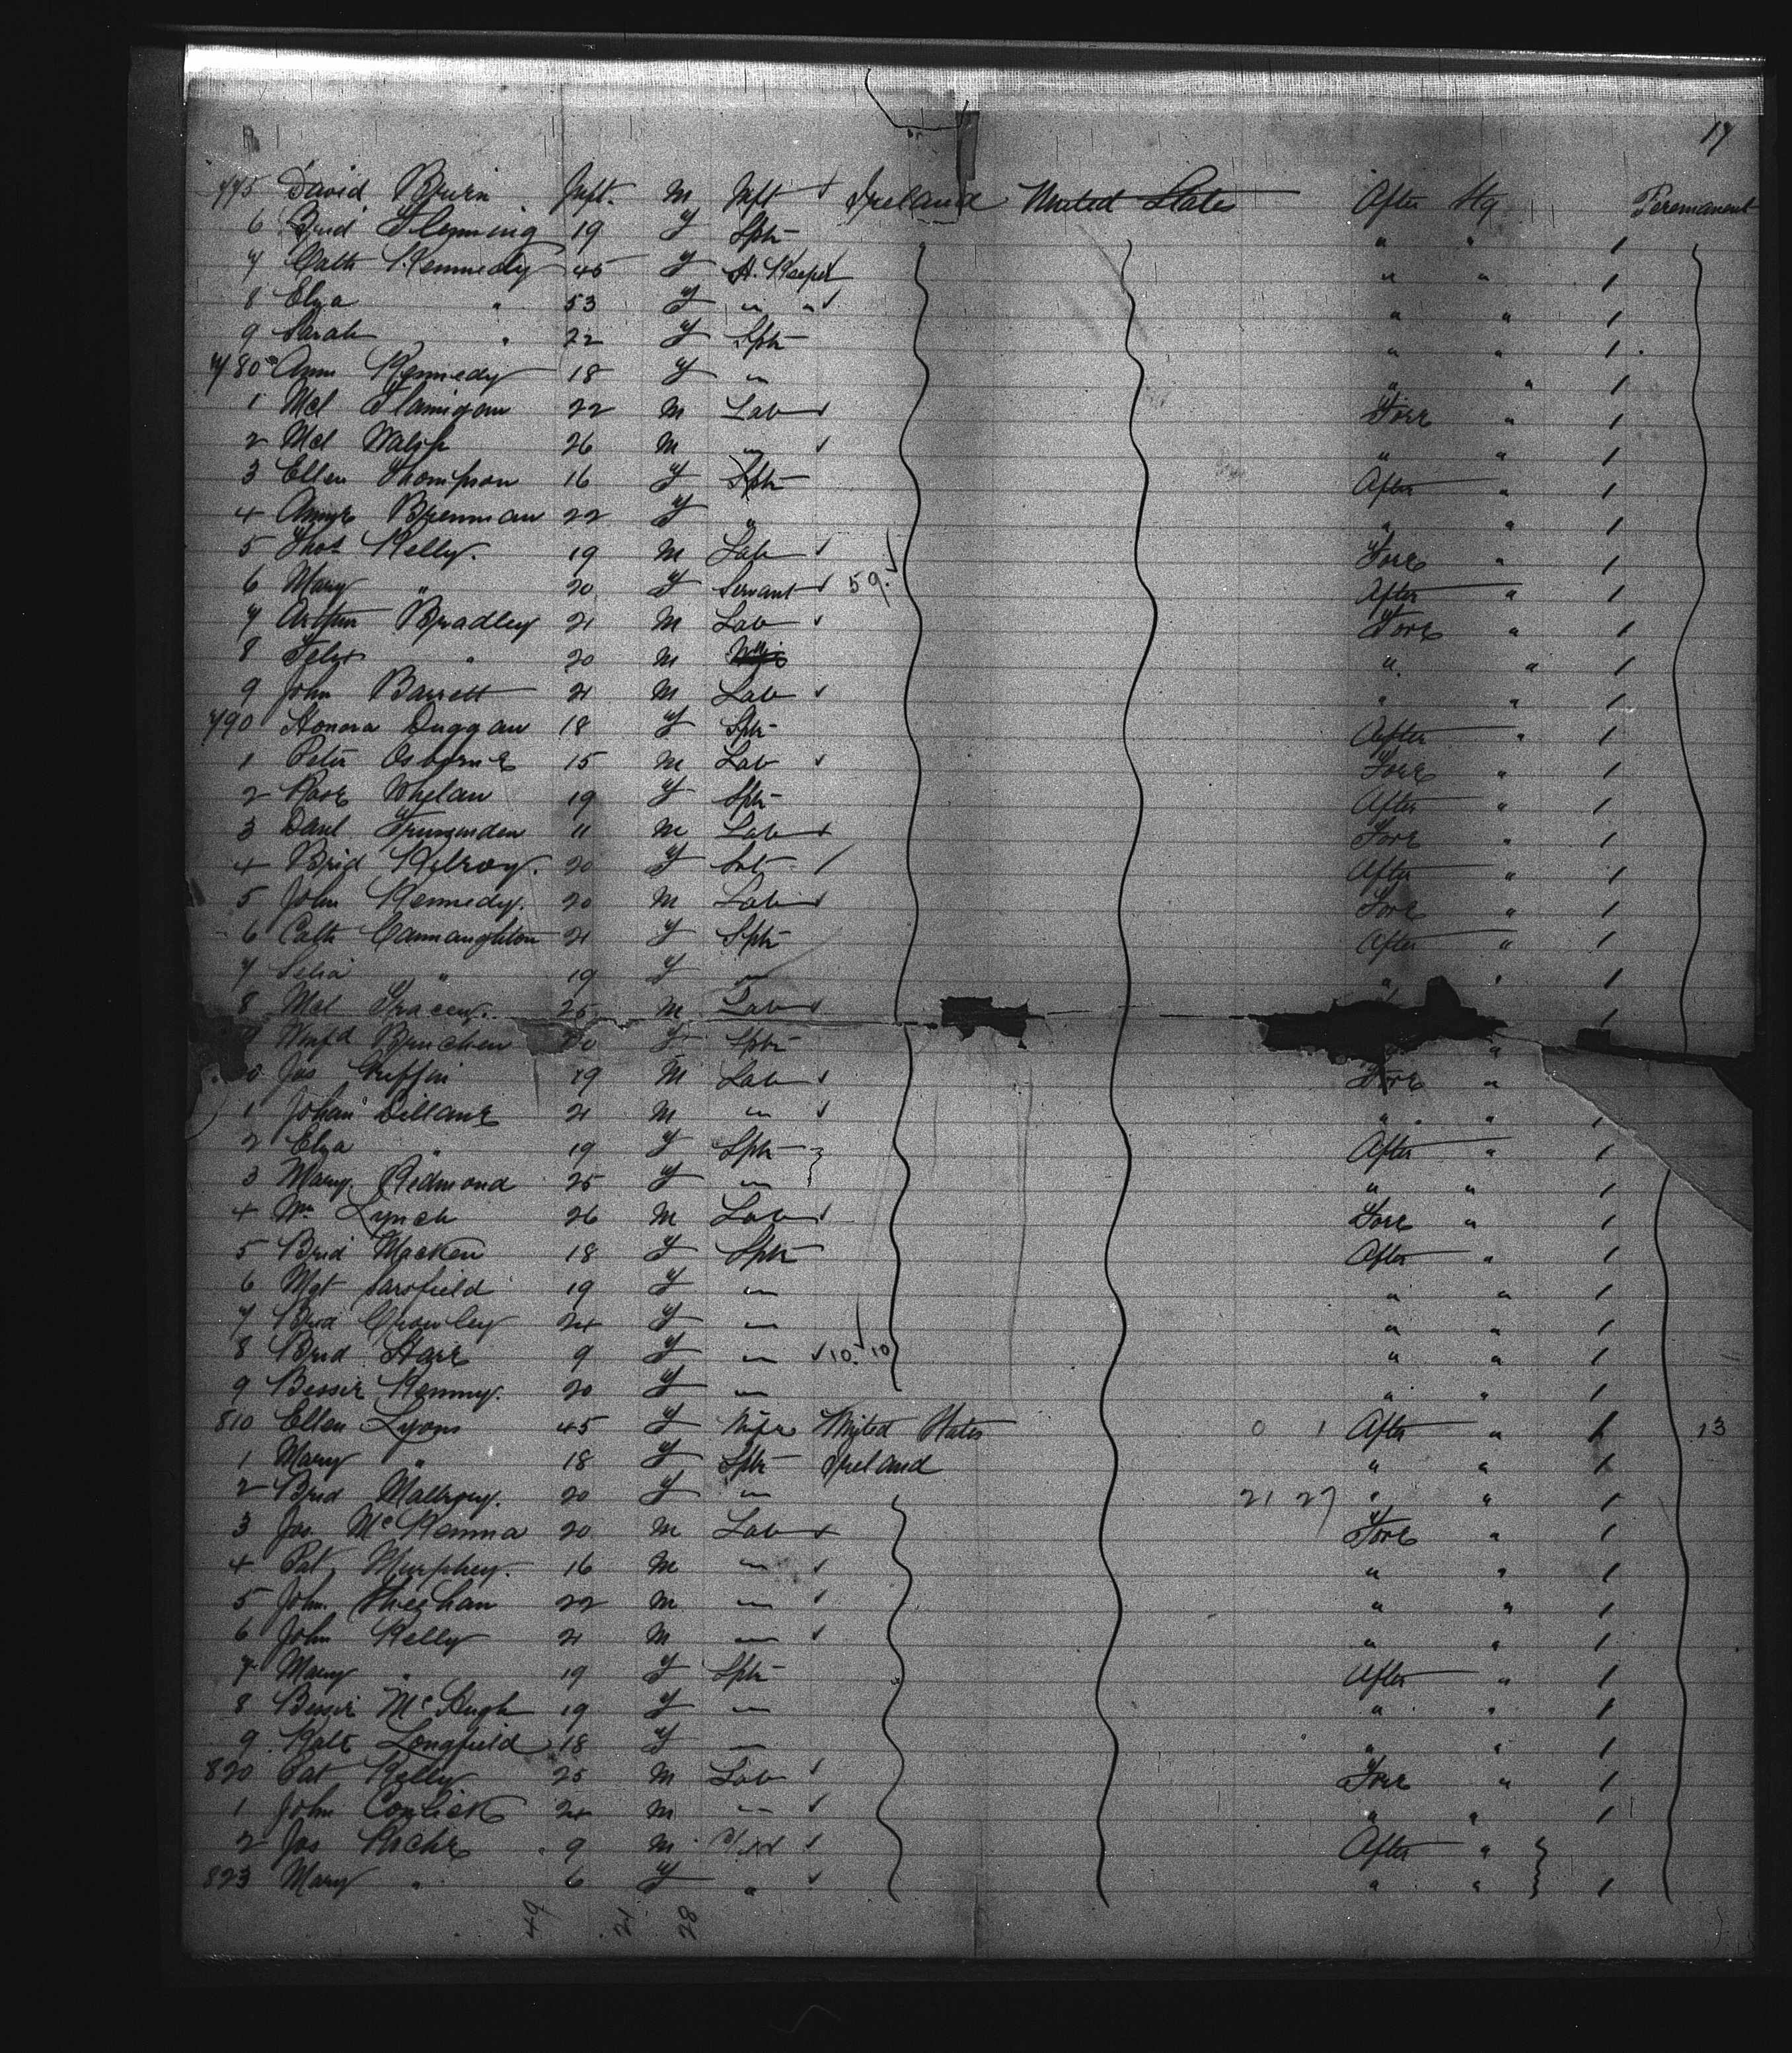 17
775 David Bruin Inft. M Inft Ireland United States After Stg Peremanent
6 Brid Flemming 19 F Sptr " " 1
7 Cath Kennedy 45 F H. Keeper " " 1
8 Elza " 53 F " " " " 1
9 Sarah " 22 F Sptr " " 1
780 Ann Kennedy 18 F " " " 1
1 Mcl Flanigan 22 M Lab Fore " 1
2 Mcl Walsh 26 M " " " 1
3 Ellen Thompson 16 F Sptr After " 1
4 Annie Brennan 22 F " " " 1
5 Thos Kelly. 19 M Lab Fore " 1
6 Mary " 20 F Servant 59. After " 1
7 Arthur Bradley 21 M Lab Fore " 1
8 Felix " 20 M " " " 1
9 John Barrett 21 M Lab " " 1
790 Honora Duggan 18 F Sptr After " 1
1 Peter Osborne 15 M Lab Fore " 1
2 Rose Whelan 19 F Sptr After " 1
3 Danl 11 M Lab Fore " 1
4 Brid Kilroy. 20 F After " 1
5 John Kennedy. 20 M Lab Fore " 1
6 Cath Cannaughton 21 F Sptr After " 1
7 Selia " 19 F " " " 1
8 Mcl Tracey. 25 M Lab 1
Winfd Bracken F Sptr "
0 Jos Griffin 19 M Lab Fore "
1 Johan Dillane 21 M " " " 1
2 Elza " 19 F Sptr After " 1
3 Mary Redmond 25 F " " " 1
4 Wm Lynch 26 M Lab Fore " 1
5 Brid Macken 18 F Sptr After " 1
6 Mgt Sarsfield 19 F " " " 1
7 Brid Crowley 24 F " " " 1
8 Brid Hare 9 F " 10. 10 " " 1
9 Bessie Kenny. 20 F " " " 1
810 Ellen Lyons 45 F Wife United States 0 1 After " 1 13
1 Mary " 18 F Sptr Ireland " " 1
2 Brid Mallroy. 20 F " 21 27 " " 1
3 Jos. McKenna 20 M Lab Fore " 1
4 Pat Murphey. 16 M " " " 1
5 John. Sheehan 22 M " " " 1
6 John Kelly 21 M " " " 1
7 Mary " 19 F Sptr After " 1
8 Bessie McHugh 19 F " " " 1
9 Kate Longfield 18 F " " " 1
820 Pat Kelly 25 M Lab Fore " 1
1 John 24 M " " " 1
2 Jos Roche 9 M Child After "
823 Mary " 6 F " " " 1
49 21 28